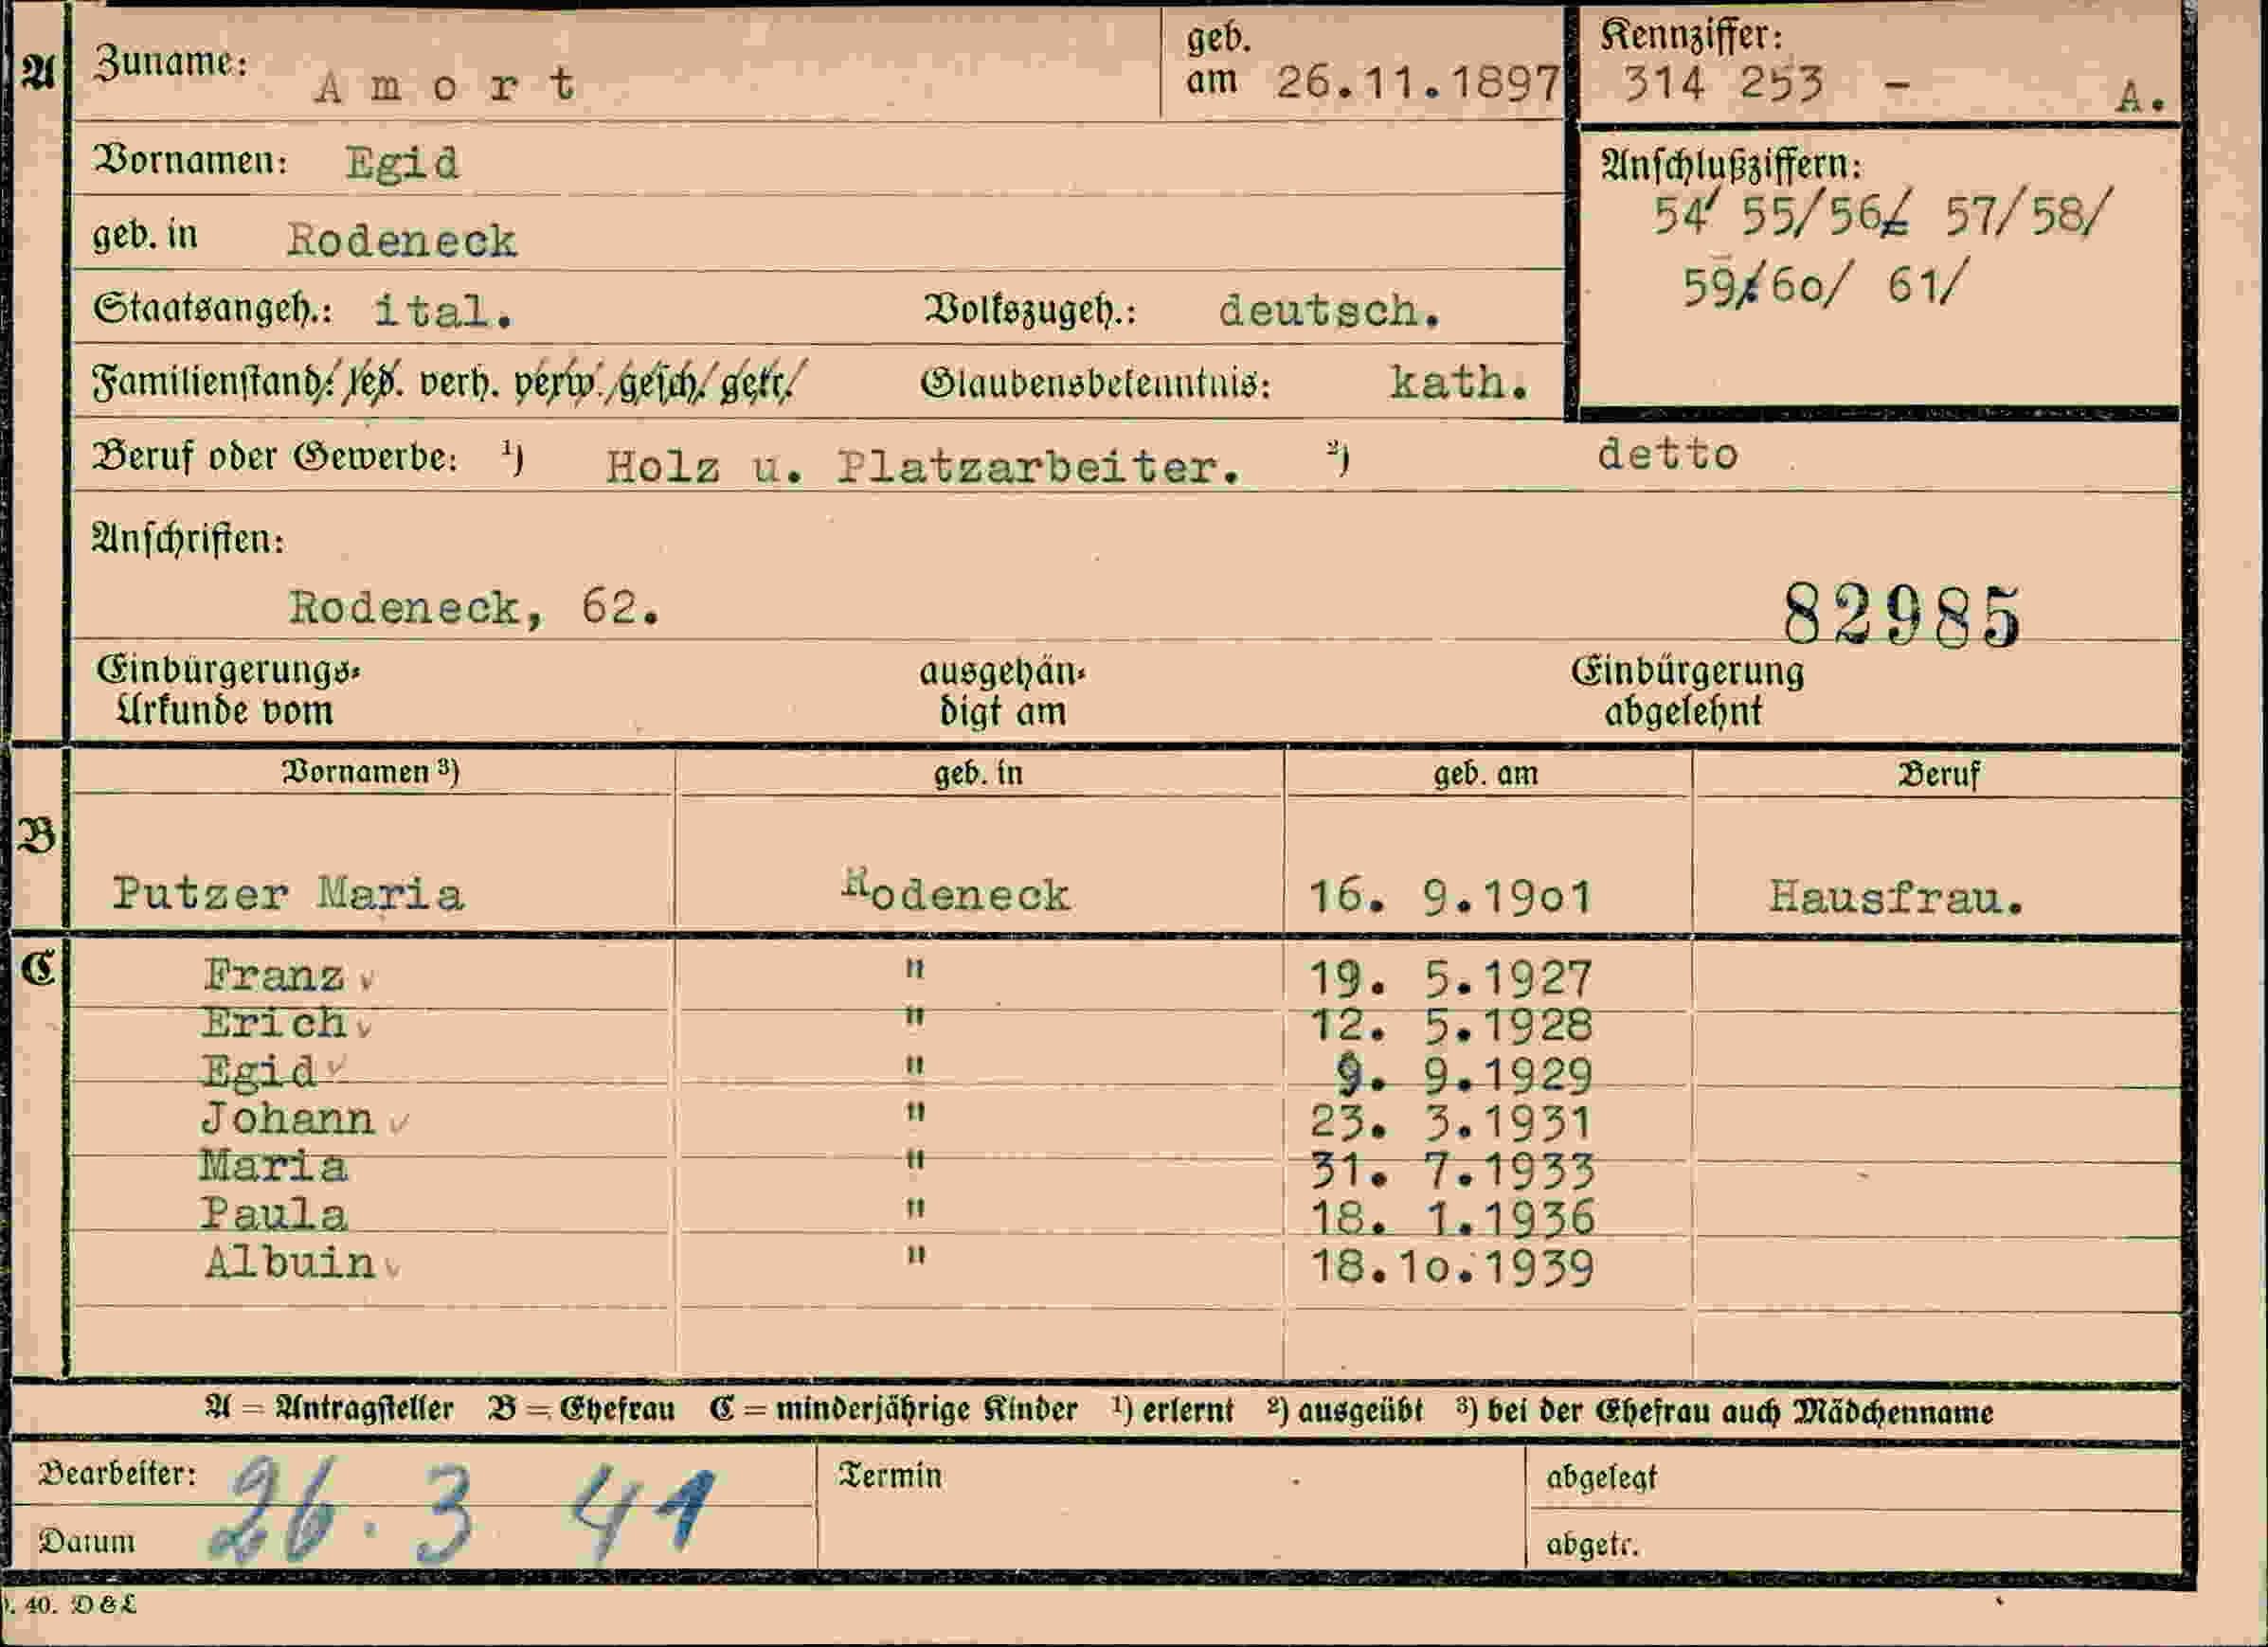 A Zuname: Amort geb. am 26.11.1897 Kennziffer: 314 253 - A.
Vornamen: Egid Anschlußziffern:
54/ 55/56/ 57/58/
geb. in Rodeneck
59/60/ 61/
Staatsangeh.: ital. Volkszugeh.: deutsch.
Familienstand: led. verh. verw. gesch. getr. Glaubensbekenntnis: kath.
Beruf oder Gewerbe: ¹) Holz u. Platzarbeiter. ²) detto
Anschriften:
Rodeneck, 62. 82985
Einbürgerungs- ausgehän- Einbürgerung
Urkunde vom digt am abgelehnt
Vornamen ³) geb. in geb. am Beruf
B
Putzer Maria Rodeneck 16. 9.1901 Hausfrau.
C Franz " 19. 5.1927
Erich " 12. 5.1928
Egid " 9. 9.1929
Johann " 23. 3.1931
Maria " 31. 7.1933
Paula " 18. 1.1936
Albuin " 18.10.1939
A = Antragsteller B = Ehefrau C = minderjährige Kinder ¹) erlernt ²) ausgeübt ³) bei der Ehefrau auch Mädchenname
Bearbeiter: Termin abgelegt
26. 3 41
Datum abgetr.
. 40. D & L